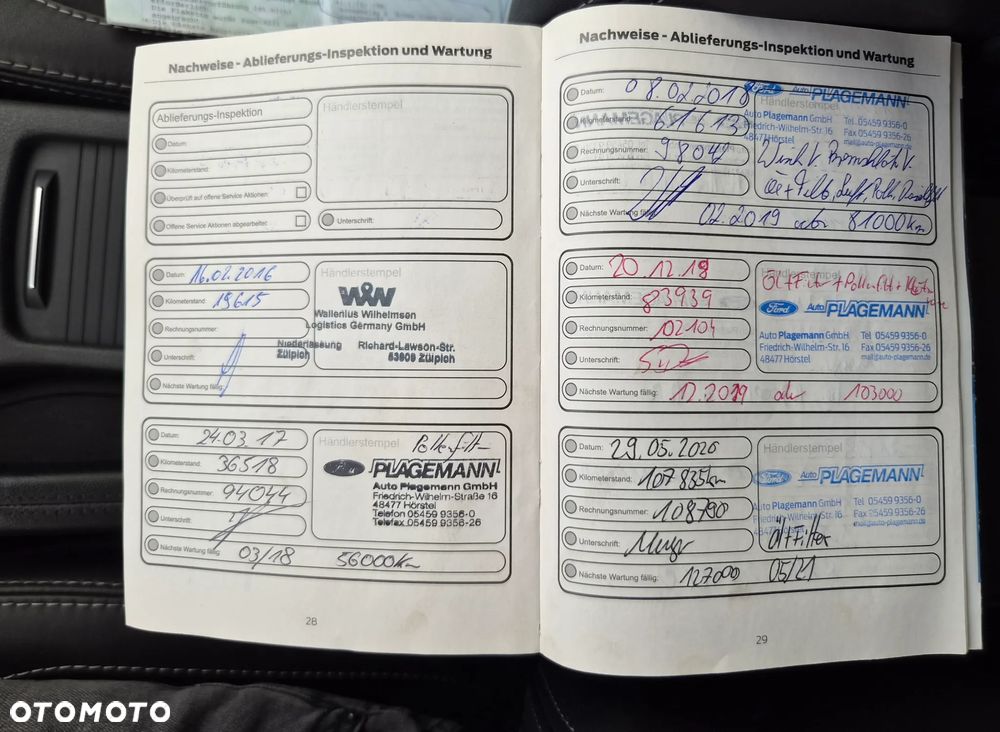 erforderlich.
Die Plakette wurde
Nachweise - Ablieferungs-Inspektion und Wartung
Ablieferungs-Inspektion
Händlerstempel
Datum:
Kilometerstand:
Überprüft auf offene Service Aktionen:
Offene Service Aktionen abgearbeitet:
Unterschrift:
Datum: 16.02.2016
Händlerstempel
Kilometerstand: 19615
WW
Wallenius Wilhelmsen
Logistics Germany GmbH
Rechnungsnummer:
Niederlassung Richard-Lawson-Str.
Zülpich 53909 Zülpich
Unterschrift:
Nächste Wartung fällig:
Datum: 24.03 17
Händlerstempel
Kilometerstand: 36518
Ford PLAGEMANN
Rechnungsnummer: 94044
Auto Plagemann GmbH
Friedrich-Wilhelm-Straße 16
48477 Hörstel
Telefon 05459 9356-0
Telefax 05459 9356-26
Unterschrift:
Nächste Wartung fällig: 03/18 56000Km
28
Nachweise - Ablieferungs-Inspektion und Wartung
Datum: 08.02.2018
Händlerstempel
Ford Auto PLAGEMANN
Kilometerstand: 61613
Auto Plagemann GmbH Tel. 05459 9356-0
Friedrich-Wilhelm-Str. 16 Fax 05459 9356-26
48477 Hörstel mail@auto-plagemann.de
Rechnungsnummer: 98042
Unterschrift:
Nächste Wartung fällig: 02.2019 oder 81000Km
Datum: 20.12.18
Händlerstempel
Öl+Filter + Pollenfilt +
Kilometerstand: 83939
Ford Auto PLAGEMANN
Rechnungsnummer: 02104
Auto Plagemann GmbH Tel 05459 9356-0
Friedrich-Wilhelm-Str. 16 Fax 05459 9356-26
48477 Hörstel mail@auto-plagemann.de
Unterschrift:
Nächste Wartung fällig: 12.2019 oder 103000
Datum: 29.05.2020
Händlerstempel
Kilometerstand: 107835km
Ford Auto PLAGEMANN
Rechnungsnummer: 108790
Auto Plagemann GmbH Tel 05459 9356-0
Friedrich-Wilhelm-Str. 16 Fax 05459 9356-26
48477 Hörstel mail@auto-plagemann.de
Unterschrift: Meyer
Öl+Filter
Nächste Wartung fällig: 127000 05/21
29
OTOMOTO